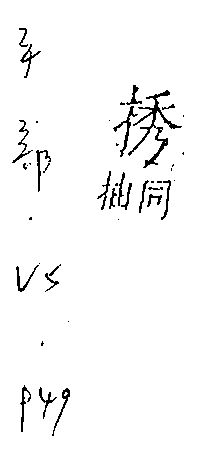 𢭆
同抽
手部·VS·P49